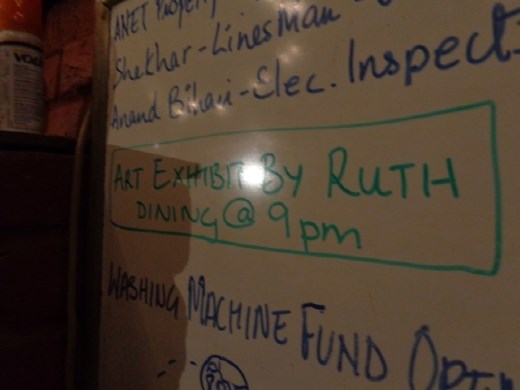 ANET Property
Shekhar - Linesman
Anand Bihari - Elec. Inspect
ART EXHIBIT BY RUTH
DINING @ 9pm
WASHING MACHINE FUND OPEN